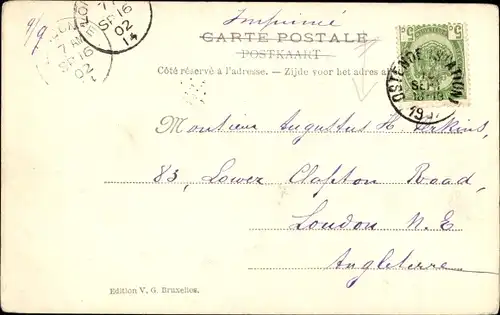 Imprimé
CARTE POSTALE
POSTKAART
Côté réservé à l'adresse. - Zijde voor het adres
5 5
OSTENDE (STATION)
SEPT
SP 16
02
7 AM
SP 16
02
Monsieur Augustus H. Perkins,
83, Lower Clapton Road,
London N. E
Angleterre
Edition V. G. Bruxelles.